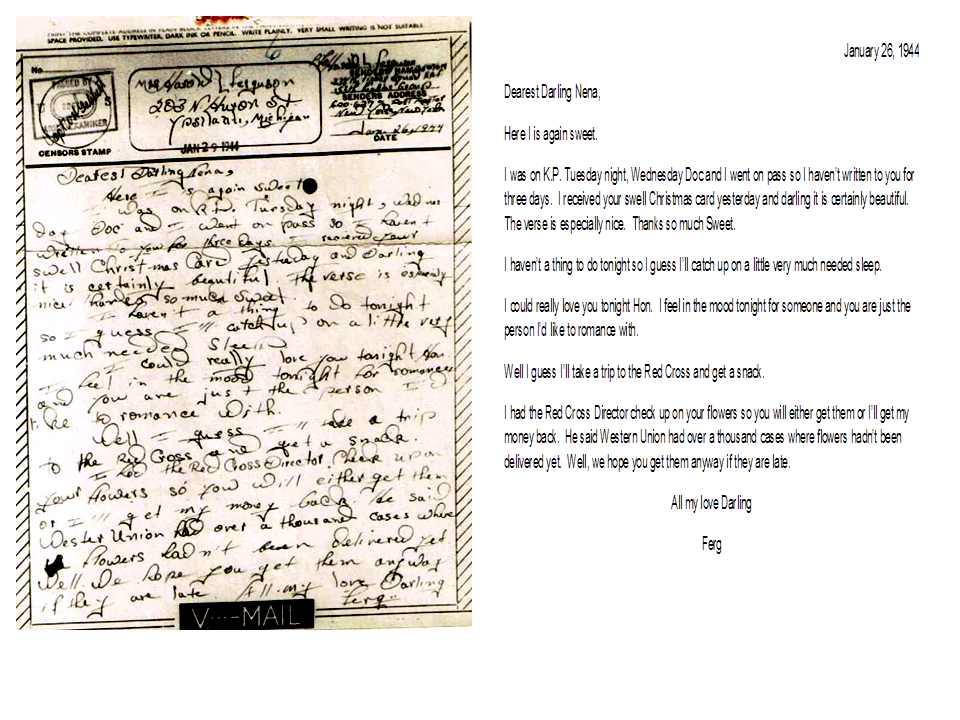 PRINT THE COMPLETE ADDRESS IN PLAIN BLOCK LETTERS
SPACE PROVIDED. USE TYPEWRITER, DARK INK OR PENCIL. WRITE PLAINLY. VERY SMALL WRITING IS NOT SUITABLE.
No.
PASSED BY
U S
EXAMINER
CENSORS STAMP
Mrs Harold L Ferguson
203 N Huron St
Ypsilanti, Michigan
JAN 29 1944
Ferguson
SENDERS NAME
SENDERS ADDRESS
New York, New York
Jan 26, 1944
DATE
Dearest Darling Nena,
Here I is again sweet
I was on K.P. Tuesday night, Wednes
day Doc and I went on pass so I haven't
written to you for three days. I received your
swell Christmas Card yesterday and Darling
it is certainly beautiful. The verse is especially
nice. Thanks so much Sweet.
I haven't a thing to do tonight
so I guess I'll catch up on a little very
much needed sleep
I could really love you tonight Hon.
I feel in the mood tonight for romance
and you are just the person I'd
like to romance with.
Well I guess I'll take a trip
to the Red Cross and get a snack.
I had the Red Cross Director. Check up on
your flowers so you will either get them
or I'll get my money back. He said
Wester Union had over a thousand cases where
flowers hadn't been delivered yet
Well. We hope you get them anyway
if they are late. All my love Darling
Ferg
V···—MAIL
January 26, 1944
Dearest Darling Nena,
Here I is again sweet.
I was on K.P. Tuesday night, Wednesday Doc and I went on pass so I haven't written to you for
three days. I received your swell Christmas card yesterday and darling it is certainly beautiful.
The verse is especially nice. Thanks so much Sweet.
I haven't a thing to do tonight so I guess I'll catch up on a little very much needed sleep.
I could really love you tonight Hon. I feel in the mood tonight for someone and you are just the
person I'd like to romance with.
Well I guess I'll take a trip to the Red Cross and get a snack.
I had the Red Cross Director check up on your flowers so you will either get them or I'll get my
money back. He said Western Union had over a thousand cases where flowers hadn't been
delivered yet. Well, we hope you get them anyway if they are late.
All my love Darling
Ferg